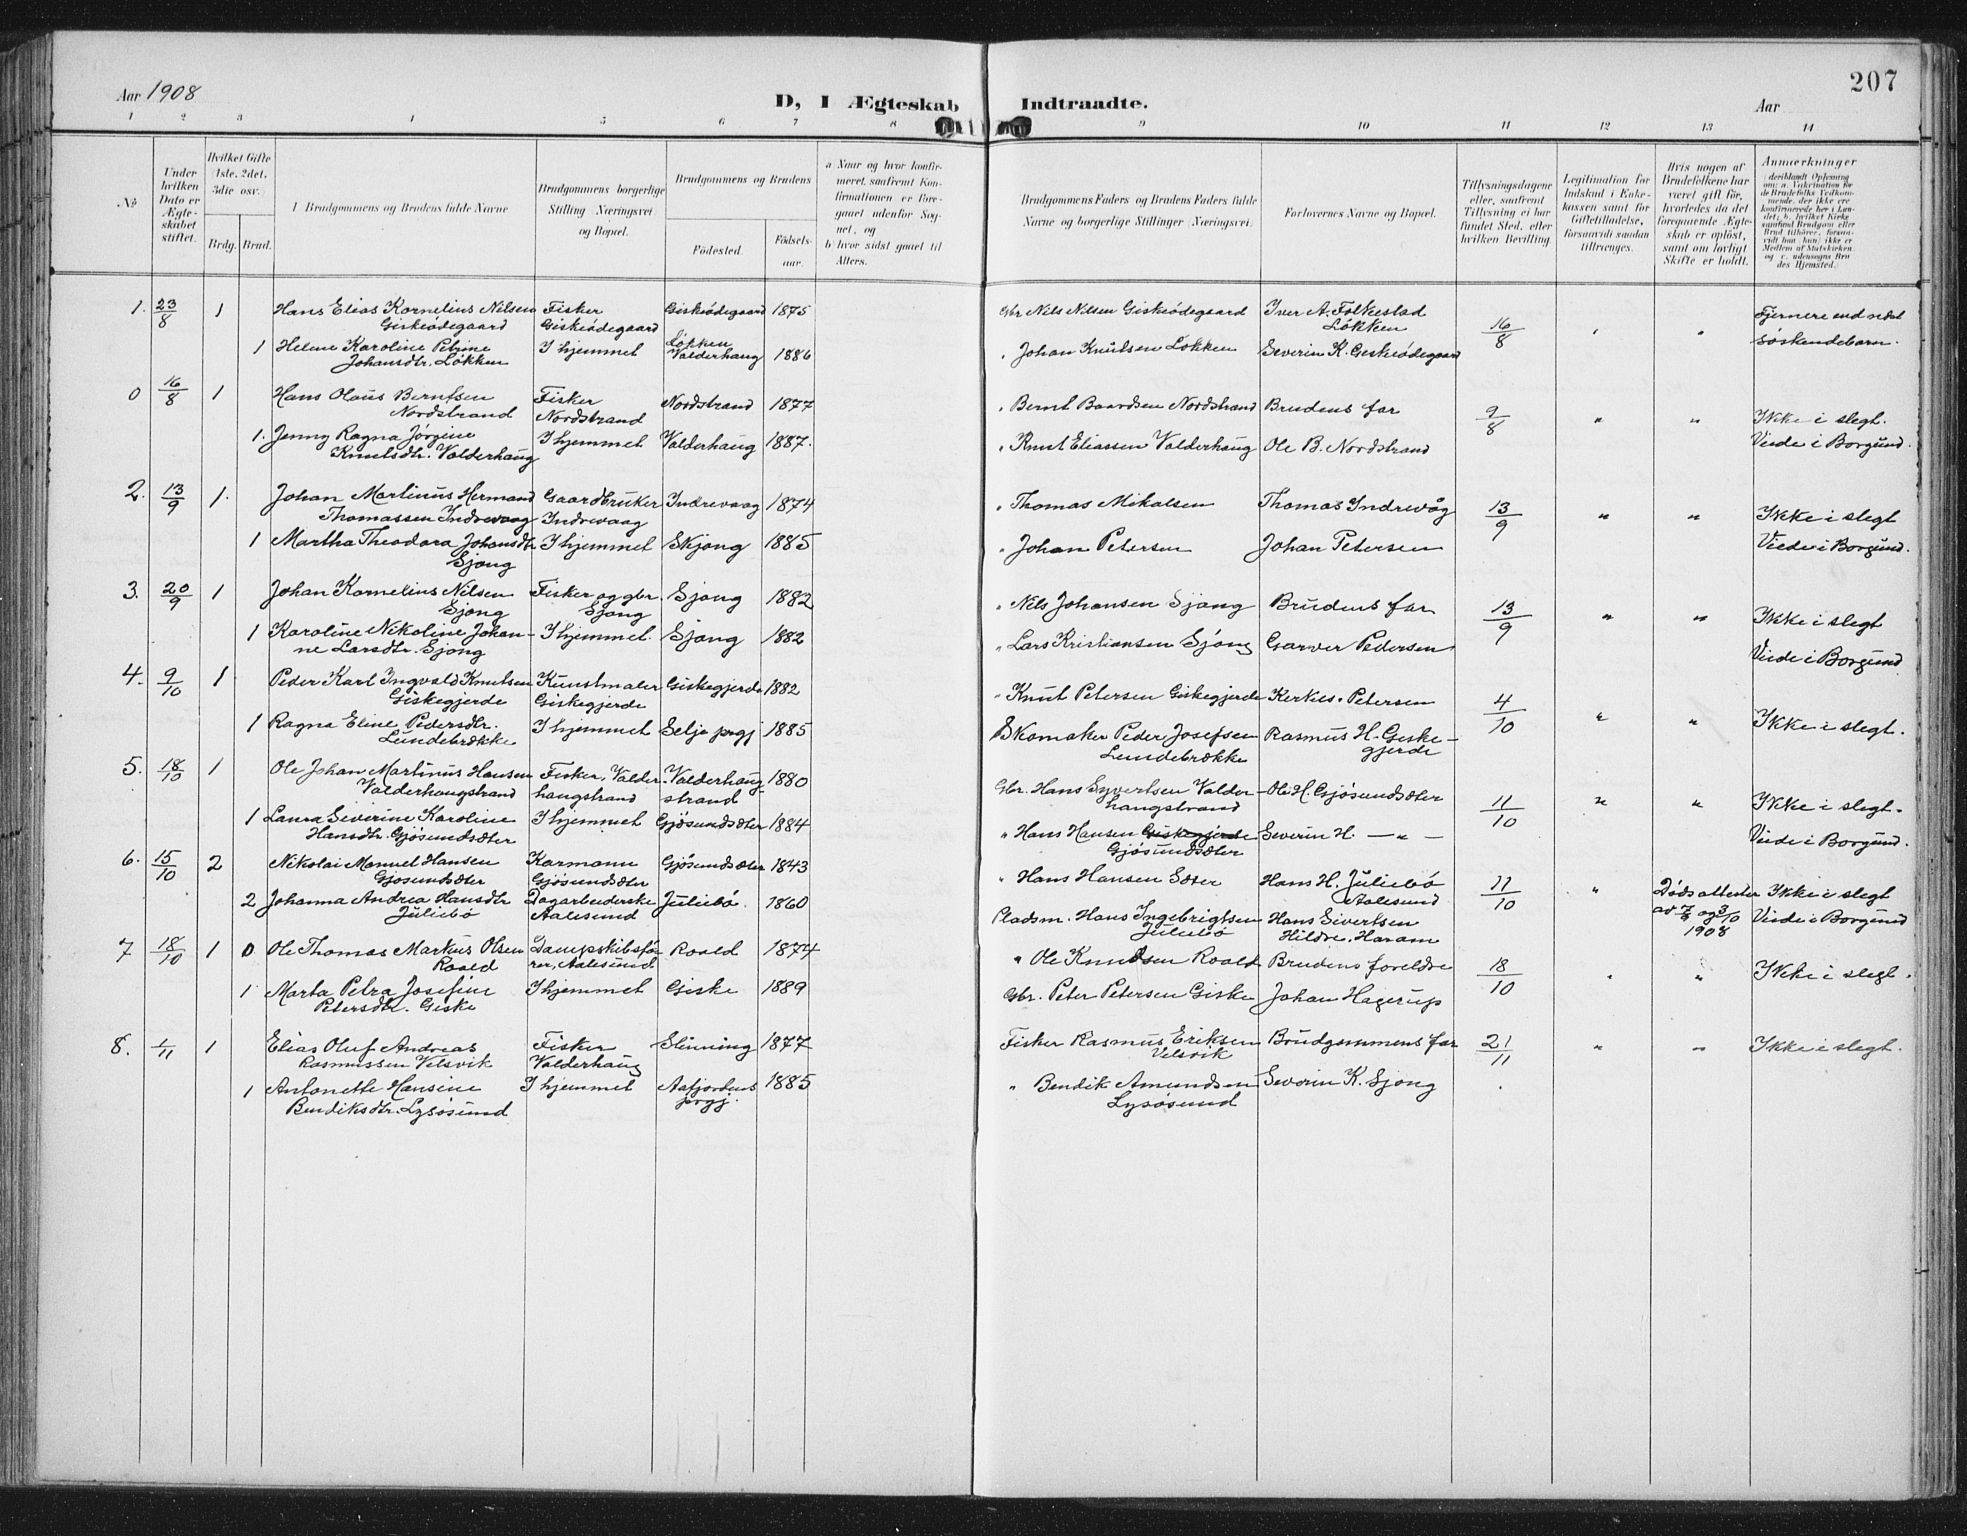 Aar 1908
D, I Ægteskab Indtraadte.
Aar
207
1 2 3 4 5 6 7 8 9 10 11 12 13 14
No
Under hvilken Dato er Ægteskabet stiftet.
Hvilket Gifte 1ste, 2det, 3die osv.
Brdg. Brud.
Brudgommens og Brudens fulde Navne
Brudgommens borgerlige Stilling Næringsvei og Bopæl.
Brudgommens og Brudens
Fødested. Fødselsaar.
a Naar og hvor konfirmeret, saafremt Konfirmationen er foregaaet udenfor Sognet, og
b hvor sidst gaaet til Alters.
Brudgommens Faders og Brudens Faders fulde Navne og borgerlige Stillinger Næringsvei.
Forlovernes Navne og Bopæl.
Tillysningsdagene eller, saafremt Tillysning ei har fundet Sted, efter hvilken Bevilling.
Legitimation for Indskud i Enkekassen samt for Giftetilladelse, forsaavidt saadan tiltrænges.
Hvis nogen af Brudefolkene har været gift før, hvorledes da det foregaaende Ægteskab er opløst, samt om lovligt Skifte er holdt.
Anmærkninger
1. 23/8 1 Hans Elias Kornelius Nilsen Fisker Giskeødegaard 1875 Gbr Nils Nilsen Giskeødegaard Iver A. Folkestad 16/8 Fjernere end næst
Giskeødegaard Giskeødegaard Løkken
1 Helene Karoline Petrine I hjemmet Løkken Valderhaug 1886 " Johan Knutsen Løkken Severin K. Giskeødegaard søskendebarn.
Johansdtr. Løkken
0 16/8 1 Hans Olaus Berntsen Fisker Nordstrand 1877 " Bernt Baardsen Nordstrand Brudens far 9/8 " " Ikke i slegt.
Nordstrand Nordstrand
1. Jenny Ragna Jørgine I hjemmet Valderhaug 1887. " Knut Eliassen Valderhaug Ole B. Nordstrand Viede i Borgund.
Knutsdtr. Valderhaug
2. 13/9 1. Johan Martinus Hermand Gaardbruker Indrevaag 1874 " Thomas Mikalsen Thomas Indrevåg 13/9 " " Ikke i slegt
Thomassen Indrevaag Indrevaag
1 Martha Theodora Johansdtr I hjemmet Skjong 1885 " Johan Petersen Johan Petersen Viede i Borgund.
Sjong
3. 20/9 1 Johan Kornelius Nilsen Fisker og gbr. Sjong 1882 " Nils Johansen Sjong Brudens far 13/9 " " Ikke i slegt
Sjong Sjong
1 Karoline Nikoline Johan- I hjemmet. Sjong 1882 " Lars Kristiansen Sjong Garver Pedersen Viede i Borgund
ne Larsdtr. Sjong
4. 9/10 1 Peder Karl Ingvald Knutsen Kunstmaler Giskegjerde 1882 " Knut Petersen Giskegjerde Kerkes. Petersen 4/10 " " Ikke i slegt.
Giskegjerde Giskegjerde
1 Ragna Eline Pedersdtr. I hjemmet Selje prgj 1885 Skomaker Peder Josefsen Rasmus H. Giske-
Lundebrække Lundebrække gjerde
5. 18/10 1 Ole Johan Martinus Hansen Fisker, Valder- Valderhaug- 1880 Gbr. Hans Syvertsen Valder- Ole H. Gjøsundsæter 11/10 " " Ikke i slegt.
Valderhaugstrand haugstrand strand haugstrand
1 Laura Siverine Karoline I hjemmet Gjøsundsæter 1884 " Hans Hansen Giskegjerde Severin H. — " — Viede i Borgund.
Hansdtr. Gjøsundsæter Gjøsundsæter
6. 15/10 2 Nikolai Manuel Hansen Kårmann Gjøsundsæter 1843 " Hans Hansen Sæter Hans H. Juliebø 11/10 " Dødsattester Ikke i slegt
Gjøsundsæter Gjøsundsæter Aalesund
2 Johanna Andrea Hansdtr Dagarbeiderske Juliebø. 1860 Pladsm. Hans Ingebrigtsen Hans Sivertsen av 7/8 og 3/10 Viede i Borgund
Juliebø Aalesund Juliebø Hildre, Haram 1908
7 18/10 1 0 Ole Thomas Markus Olsen Dampskibsfø- Roald 1874 " Ole Knudsen Roald Brudens foreldre 18/10 " " Ikke i slegt.
Roald rer, Aalesund
1 Marta Petra Josefine I hjemmet Giske 1889 Gbr. Peter Petersen Giske Johan Hagerup
Petersdtr. Giske
8. 1/11 1 Elias Oluf Andreas Fisker Slinning 1877 Fisker Rasmus Eriksen Brudgommens far 21/11 " " Ikke i slegt.
Rasmussen Velsvik Valderhaug Velsvik
1 Antonette Hansine I hjemmet Aafjordens 1885 " Bendik Amundsen Severin K. Sjong
Bendiksdtr. Lysøsund prgj. Lysøsund